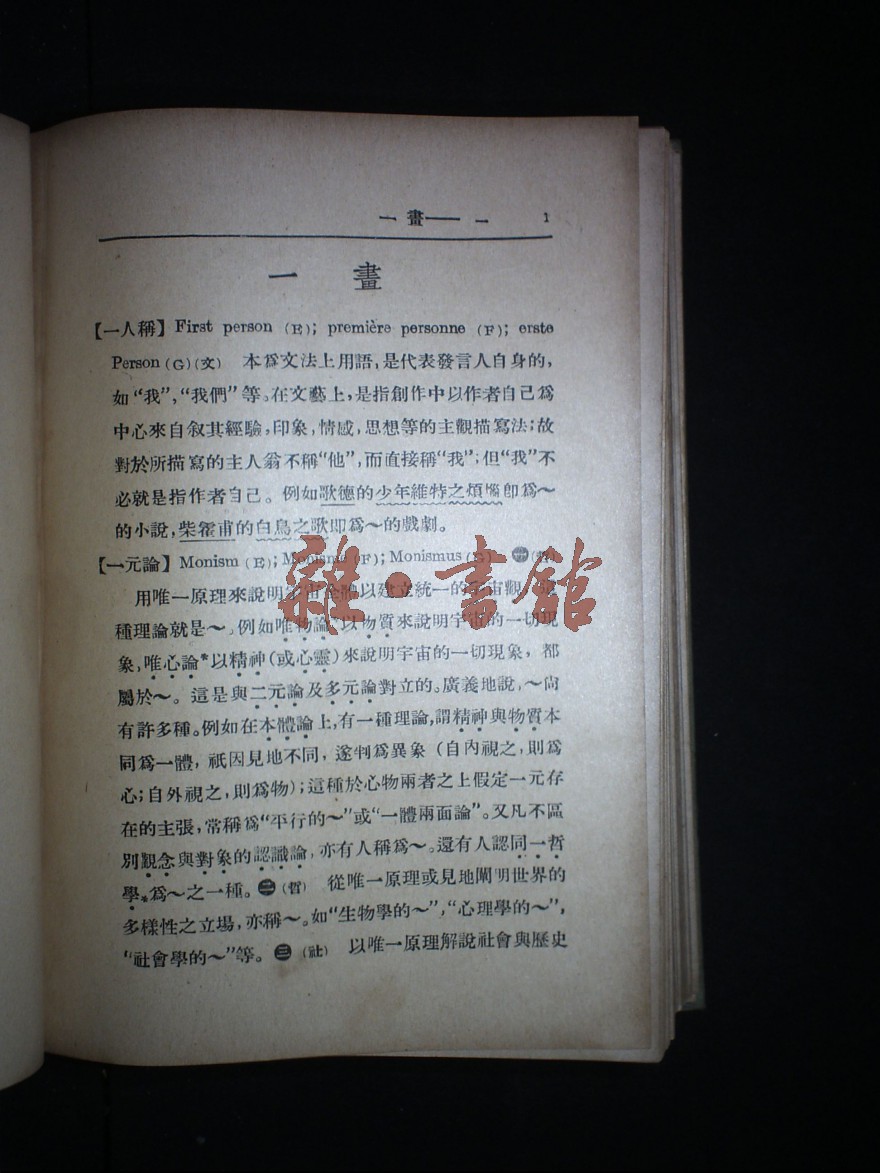 一畫—— 一 1
一 畫
【一人稱】First person (E); première personne (F); erste
Person (G) (文) 本爲文法上用語,是代表發言人自身的,
如“我”,“我們”等。在文藝上,是指創作中以作者自己爲
中心來自叙其經驗,印象,情感,思想等的主觀描寫法;故
對於所描寫的主人翁不稱“他”,而直接稱“我”;但“我”不
必就是指作者自己。例如歌德的少年維特之煩惱卽爲~
的小說,柴霍甫的白鳥之歌卽爲~的戲劇。
【一元論】Monism (E); Monisme (F); Monismus (G) ㊀(哲)
用唯一原理來說明宇宙全體以建立統一的宇宙觀,
種理論就是~。例如唯物論*以物質來說明宇宙的一切現
象,唯心論*以精神(或心靈)來說明宇宙的一切現象,都
屬於~。這是與二元論及多元論對立的。廣義地說,~尙
有許多種。例如在本體論上,有一種理論,謂精神與物質本
同爲一體,祇因見地不同,遂判爲異象(自內視之,則爲
心;自外視之,則爲物);這種於心物兩者之上假定一元存
在的主張,常稱爲“平行的~”或“一體兩面論”。又凡不區
別觀念與對象的認識論,亦有人稱爲~。還有人認同一哲
學*爲~之一種。㊁(哲) 從唯一原理或見地闡明世界的
多樣性之立場,亦稱~。如“生物學的~”,“心理學的~”,
“社會學的~”等。㊂(社) 以唯一原理解說社會與歷史
雜·書館